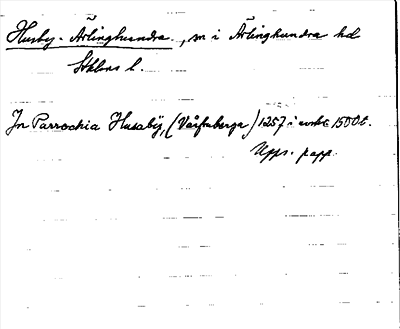 Husby-Ärlinghundra, sn i Ärlinghundra hd
Sthlms l.
In Parrochia Husaby, (Våfraberga) 1257 i avskr 1500t.
Upps. papp.